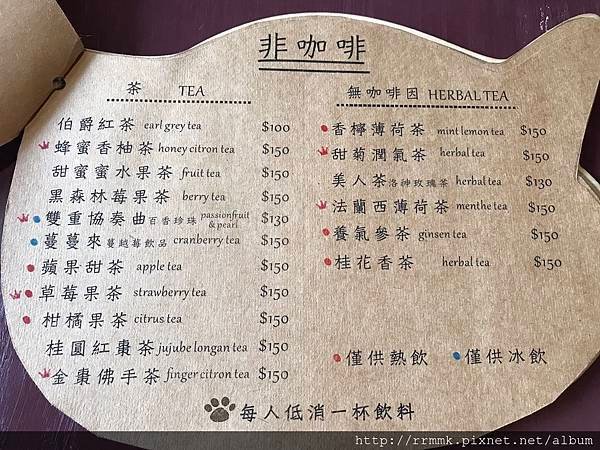 非咖啡
茶 TEA
伯爵紅茶 earl grey tea $100
蜂蜜香柚茶 honey citron tea $150
甜蜜蜜水果茶 fruit tea $150
黑森林莓果茶 berry tea $150
雙重協奏曲 百香珍珠 passionfruit & pearl $130
蔓蔓來 蔓越莓飲品 cranberry tea $150
蘋果甜茶 apple tea $150
草莓果茶 strawberry tea $150
柑橘果茶 citrus tea $150
桂圓紅棗茶 jujube longan tea $150
金棗佛手茶 finger citron tea $150
無咖啡因 HERBAL TEA
香檸薄荷茶 mint lemon tea $150
甜菊潤氣茶 herbal tea $150
美人茶 洛神玫瑰茶 herbal tea $130
法蘭西薄荷茶 menthe tea $150
養氣參茶 ginsen tea $150
桂花香茶 herbal tea $150
僅供熱飲 僅供冰飲
每人低消一杯飲料
http://rrmmk.pixnet.net/album